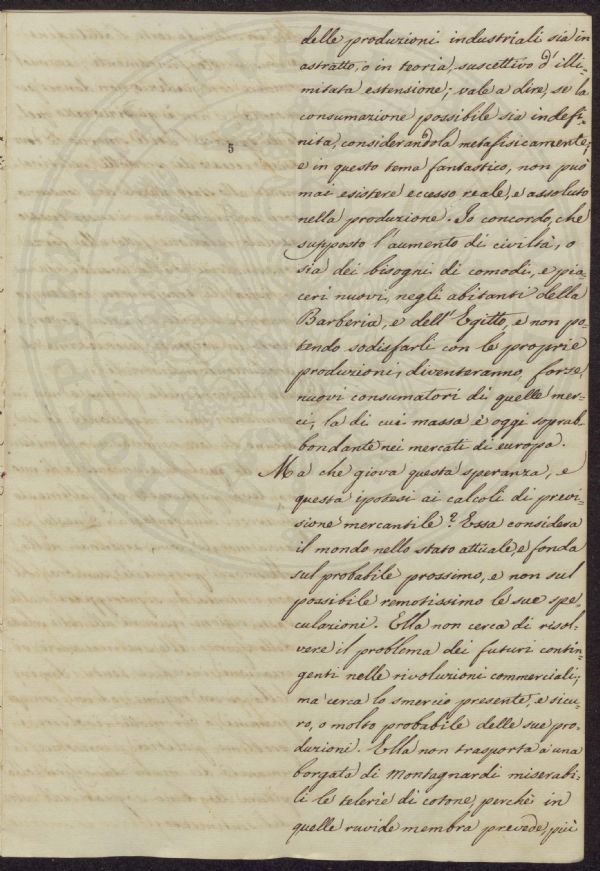 delle produzioni industriali sia in
astratto, o in teoria, suscettivo d'illi=
mitata estensione; vale a dire, se la
consumazione possibile sia indefi=
nita, considerandola metafisicamente;
e in questo tema fantastico, non può
mai esistere eccesso reale, e assoluto
nella produzione. Io concordo, che
supposto l'aumento di civiltà, o
sia dei bisogni di comodi, e pia=
ceri nuovi, negli abitanti della
Barberia, e dell'Egitto, e non po=
tendo sodisfarli con le proprie
produzioni, diventeranno, forse,
nuovi consumatori di quelle mer=
ci, la di cui massa è oggi soprab=
bondante nei mercati di europa.
Ma che giova questa speranza, e
questa ipotesi ai calcoli di previ=
sione mercantile? Essa considera
il mondo nello stato attuale, e fonda
sul probabile prossimo, e non sul
possibile remotissimo le sue spe=
culazioni. Ella non cerca di risol=
vere il problema dei futuri contin=
genti nelle rivoluzioni commerciali;
ma cerca lo smercio presente, e sicu=
ro, o molto probabile delle sue pro=
duzioni. Ella non trasporta a una
borgata di Montagnardi miserabi=
li le telerie di cotone, perchè in
quelle ruvide membra prevede, più
5